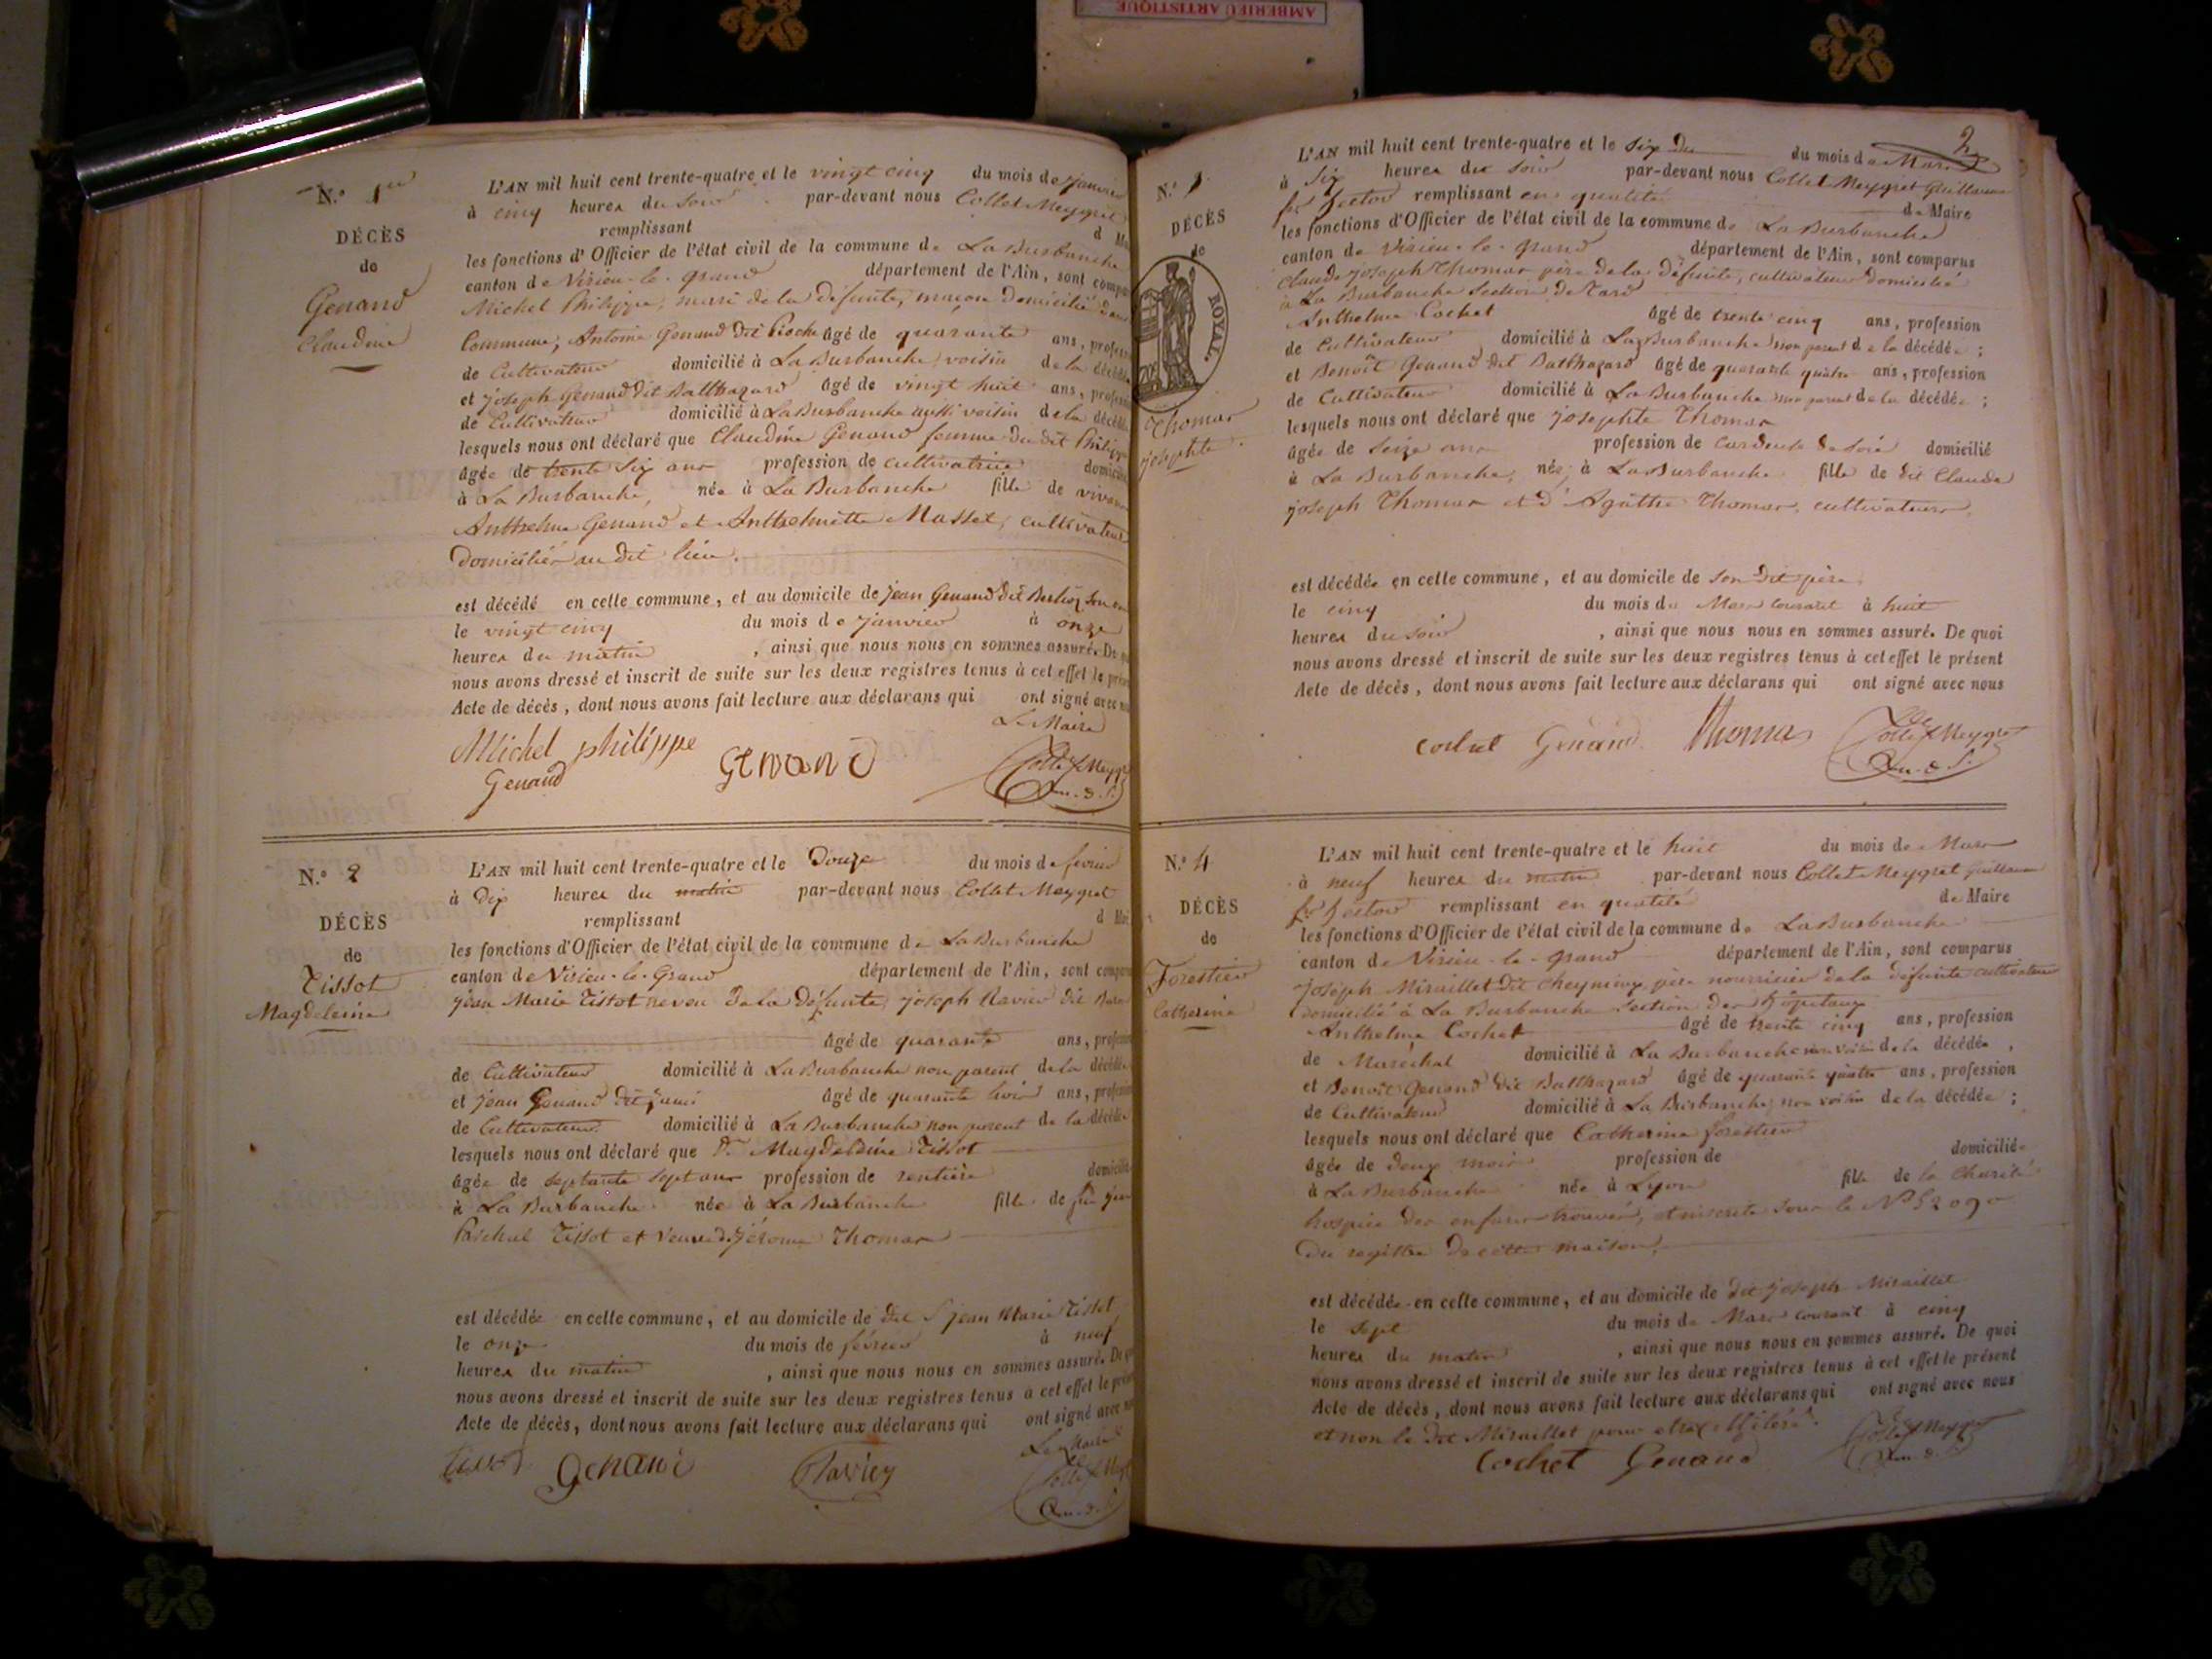 AMBERIEU ARTISTIQUE
N.º 1er
DÉCÈS
de
Genand
Claudine
L'AN mil huit cent trente-quatre et le vingt cinq du mois de janvier
à cinq heures du soir par-devant nous Collet-Meygret
remplissant
les fonctions d'Officier de l'état civil de la commune de La Burbanche
canton de Virieu-le-grand département de l'Ain, sont
Michel Philippe, mari de la défunte, maçon domicilié
Commune, Antoine Genand dit Pioche âgé de quarante ans,
de Cultivateur domicilié à La Burbanche voisin de la
et joseph Genand dit Balthazard âgé de vingt huit ans,
de Cultivateur domicilié à La Burbanche aussi voisin de la
lesquels nous ont déclaré que Claudine Genand femme du dit
âgée de trente six ans profession de cultivatrice
à La Burbanche, née à La Burbanche fille de
Anthelme Genand et Anthelmette Masset, cultivateurs
domiciliés au dit lieu.
est décédé en celle commune, et au domicile de jean Genand dit
le vingt cinq du mois de janvier à onze
heures du matin , ainsi que nous nous en sommes assuré. De
nous avons dressé et inscrit de suite sur les deux registres tenus à cet effet le
Acte de décès, dont nous avons fait lecture aux déclarans qui ont signé avec
Le Maire
Michel philippe
Genand Genand Collet Meygret
N.º 2
DÉCÈS
de
Tissot
Magdeleine
L'AN mil huit cent trente-quatre et le Douze du mois de février
à Dix heures du matin par-devant nous Collet-Meygret
remplissant
les fonctions d'Officier de l'état civil de la commune de La Burbanche
canton de Virieu-le-Grand département de l'Ain, sont
jean Marie Tissot neveu de la défunte, joseph Ravier dit
âgé de quarante ans,
de Cultivateur domicilié à La Burbanche non parent de la
et jean Genand dit âgé de quarante ans,
de Cultivateur domicilié à La Burbanche non parent de la décédée
lesquels nous ont déclaré que Magdeleine Tissot
âgée de septante sept ans profession de rentière
à La Burbanche née à La Burbanche fille de feu
Paschal Tissot et veuve de jérome Thomas
est décédée en celle commune, et au domicile de dit S jean Marie Tissot
le onze du mois de février à neuf
heures du matin , ainsi que nous nous en sommes assuré. De
nous avons dressé et inscrit de suite sur les deux registres tenus à cet effet le
Acte de décès, dont nous avons fait lecture aux déclarans qui ont signé avec
Le Maire
Tissot Genand Ravier
2
N.º 3
DÉCÈS
de
ROYAL.
Thomas
josephte
L'AN mil huit cent trente-quatre et le six du du mois de Mars
à Six heures du soir par-devant nous Collet Meygret Guillaume
remplissant en qualité de Maire
les fonctions d'Officier de l'état civil de la commune de La Burbanche
canton de Virieu-le-grand département de l'Ain, sont comparus
Claude joseph Thomas père de la défunte, cultivateur domicilié
à La Burbanche Section de
Anthelme Cochet âgé de trente cinq ans, profession
de Cultivateur domicilié à La Burbanche non parent de la décédée ;
et Benoît Genand dit Balthazard âgé de quarante quatre ans, profession
de Cultivateur domicilié à La Burbanche non parent de la décédée ;
lesquels nous ont déclaré que josephte Thomas
âgée de seize ans profession de Cardeuse de soie domicilié
à La Burbanche, née à La Burbanche fille de dit Claude
joseph Thomas et d'Agathe Thomas, cultivateurs.
est décédée en celle commune, et au domicile de son dit père
le cinq du mois de Mars courant à huit
heures du soir , ainsi que nous nous en sommes assuré. De quoi
nous avons dressé et inscrit de suite sur les deux registres tenus à cet effet le présent
Acte de décès, dont nous avons fait lecture aux déclarans qui ont signé avec nous
Cochet Genand Thomas Collet Meygret
N.º 4
DÉCÈS
de
Forestier
Catherine
L'AN mil huit cent trente-quatre et le huit du mois de Mars
à neuf heures du matin par-devant nous Collet Meygret Guillaume
remplissant en qualité de Maire
les fonctions d'Officier de l'état civil de la commune de La Burbanche
canton de Virieu-le-grand département de l'Ain, sont comparus
joseph Miraillet dit père nourricier de la défunte cultivateur
domicilié à La Burbanche Section des hopitaux
Anthelme Cochet âgé de trente cinq ans, profession
de Maréchal domicilié à La Burbanche non voisin de la décédée ,
et Benoît Genand dit Balthazard âgé de quarante quatre ans, profession
de Cultivateur domicilié à La Burbanche non voisin de la décédée ;
lesquels nous ont déclaré que Catherine forestier
âgée de deux mois profession de domiciliée
à La Burbanche née à Lyon fille de la Charité
hospice des enfans trouvés, et inscrite sous le Nº 52090
du registre de cette maison.
est décédée en celle commune, et au domicile de dit joseph Miraillet
le sept du mois de Mars courant à cinq
heures du matin , ainsi que nous nous en sommes assuré. De quoi
nous avons dressé et inscrit de suite sur les deux registres tenus à cet effet le présent
Acte de décès, dont nous avons fait lecture aux déclarans qui ont signé avec nous
et non le dit Miraillet pour être illitéré.
Cochet Genand Collet Meygret